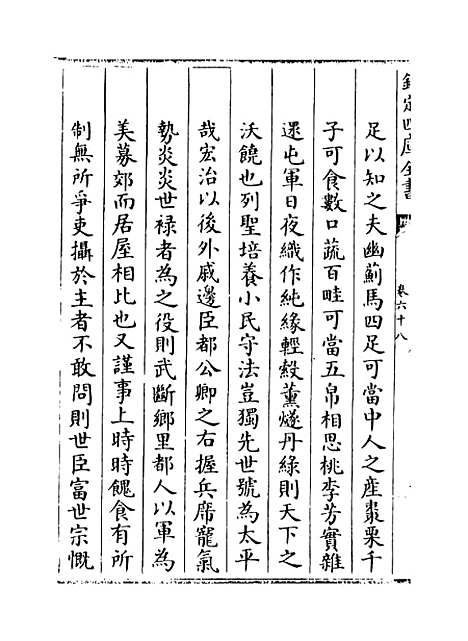 欽定四庫全書
卷六十八
足以知之夫幽薊馬四足可當中人之産棗栗千
子可食數口蔬百畦可當五帛相思桃李芳實雜
還屯軍日夜織作純緣輕縠薰燧丹綠則天下之
沃饒也列聖培養小民守法豈獨先世號為太平
哉宏治以後外戚邊臣都公卿之右握兵席寵氣
勢炎炎世祿者為之役則武斷鄉里都人以軍為
美募郊而居屋相比也又謹事上時時餽食有所
制無所爭吏攝於主者不敢問則世臣富世宗慨